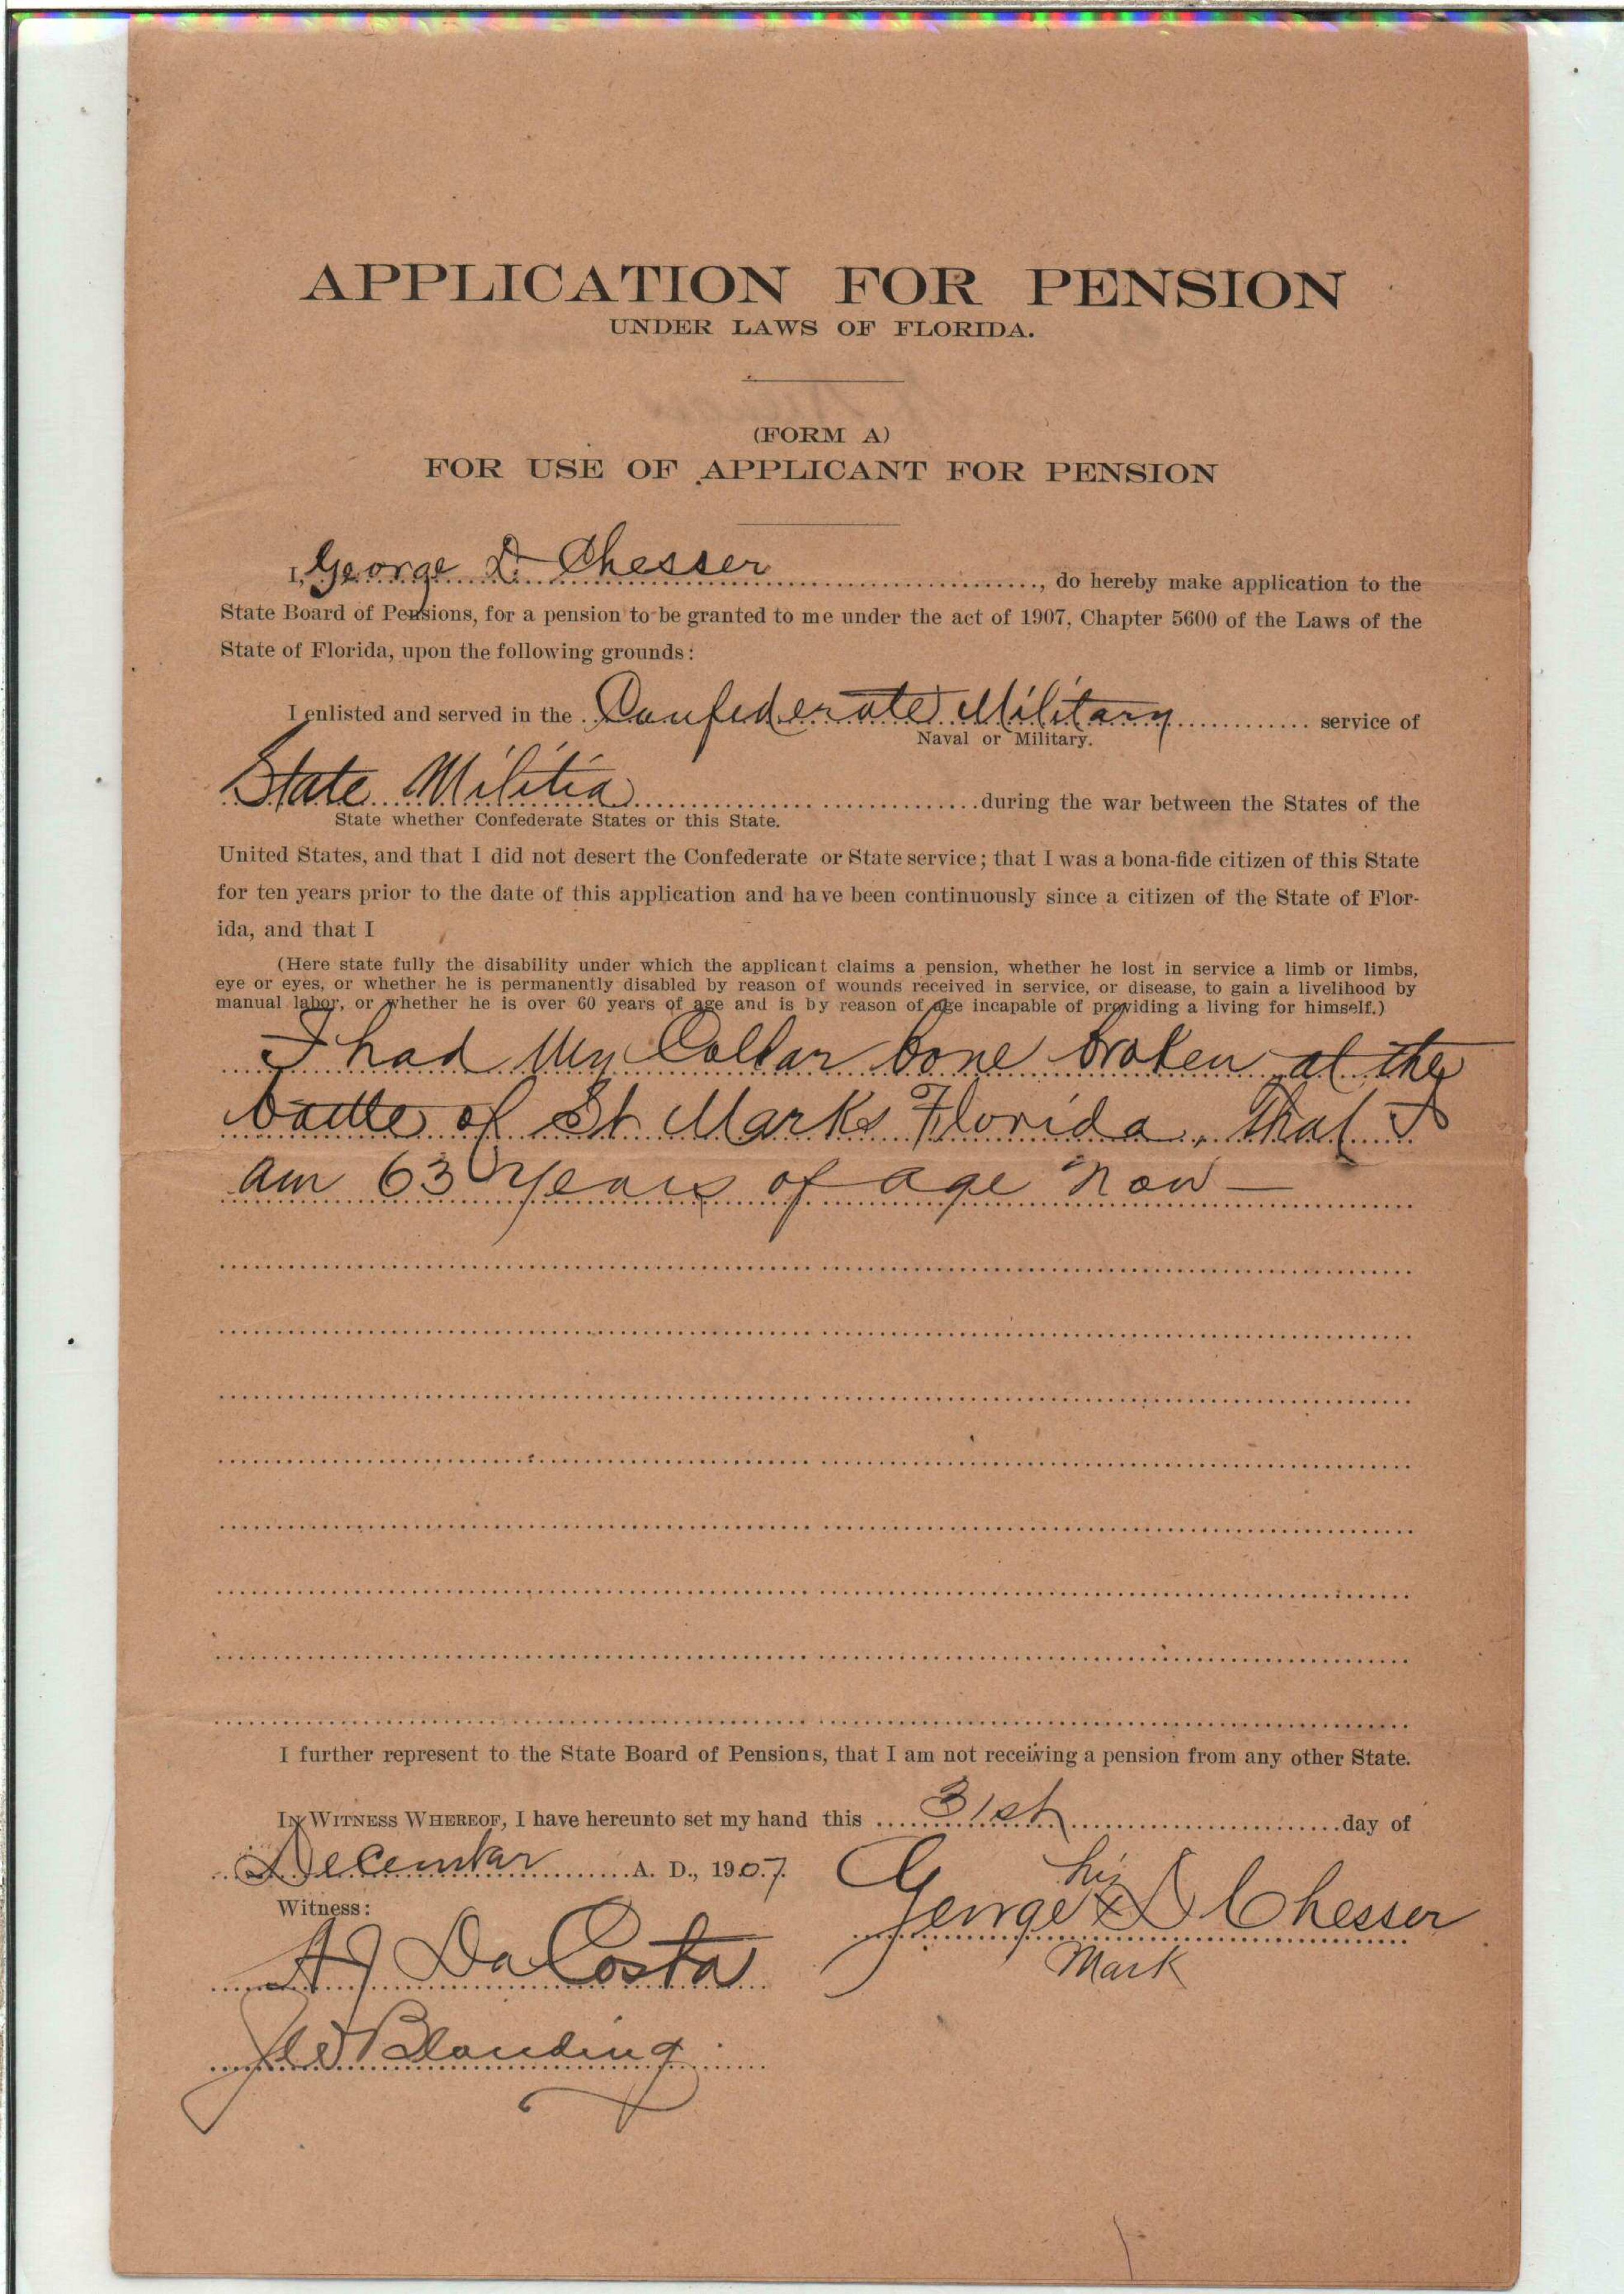 APPLICATION FOR PENSION
UNDER LAWS OF FLORIDA.
(FORM A)
FOR USE OF APPLICANT FOR PENSION
I, George D. Chesser, do hereby make application to the
State Board of Pensions, for a pension to be granted to me under the act of 1907, Chapter 5600 of the Laws of the
State of Florida, upon the following grounds:
I enlisted and served in the Confederate Military service of
Naval or Military.
State Militia during the war between the States of the
State whether Confederate States or this State.
United States, and that I did not desert the Confederate or State service; that I was a bona-fide citizen of this State
for ten years prior to the date of this application and have been continuously since a citizen of the State of Flor-
ida, and that I
(Here state fully the disability under which the applicant claims a pension, whether he lost in service a limb or limbs,
eye or eyes, or whether he is permanently disabled by reason of wounds received in service, or disease, to gain a livelihood by
manual labor, or whether he is over 60 years of age and is by reason of age incapable of providing a living for himself.)
I had My Collar bone broken at the
battle of St. Marks Florida, that I
am 63 years of age now —
I further represent to the State Board of Pensions, that I am not receiving a pension from any other State.
IN WITNESS WHEREOF, I have hereunto set my hand this 31st day of
December A. D., 1907.
his
George X D Chesser
Mark
Witness:
A J DaCosta
Blanding